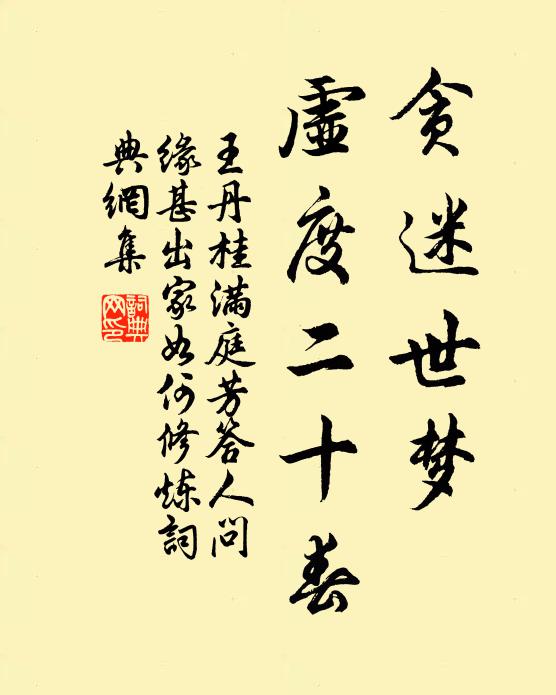 贪迷世梦
虚度二十春
王丹桂满庭芳答人问
缘甚出家如何修炼詞
典網集
詞典网印